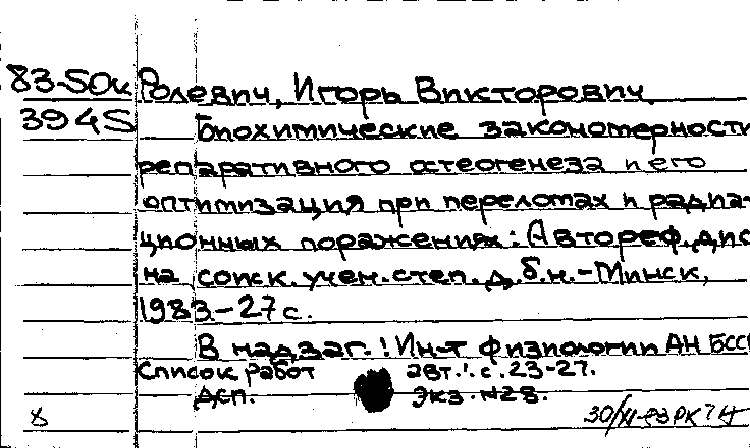 83-50к Ролевич, Игорь Викторович.
3945 Биохимические закономерности
репаративного остеогенеза и его
оптимизация при переломах и радиа-
ционных поражениях: Автореф. дис
на соиск. учен. степ. д.б.н.-Минск,
1983-27с.
В надзаг.: Ин-т физиологии АН БССР
Список работ авт.: с. 23-27.
ДСП. экз. №28.
8